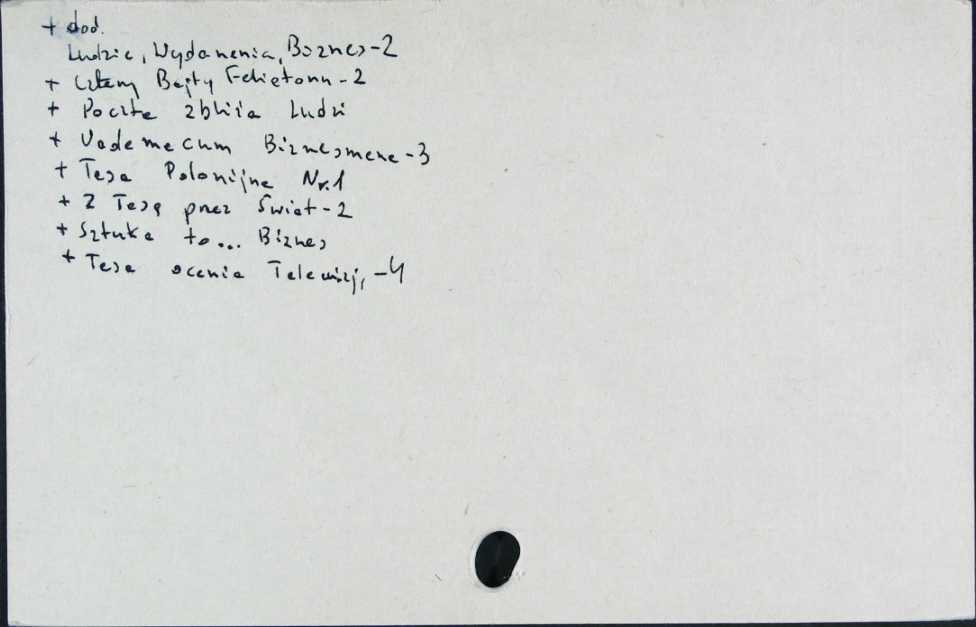 + dod.
Ludzie, Wydarzenia, Biznes-2
+ Cztery Bajty Felietonu - 2
+ Poczta zbliża Ludzi
+ Vademecum Biznesmena - 3
+ Teza Polonijna Nr. 1
+ Z Tezą przez Świat - 2
+ Sztuka to... Biznes
+ Teza ocenia Telewizję - 4